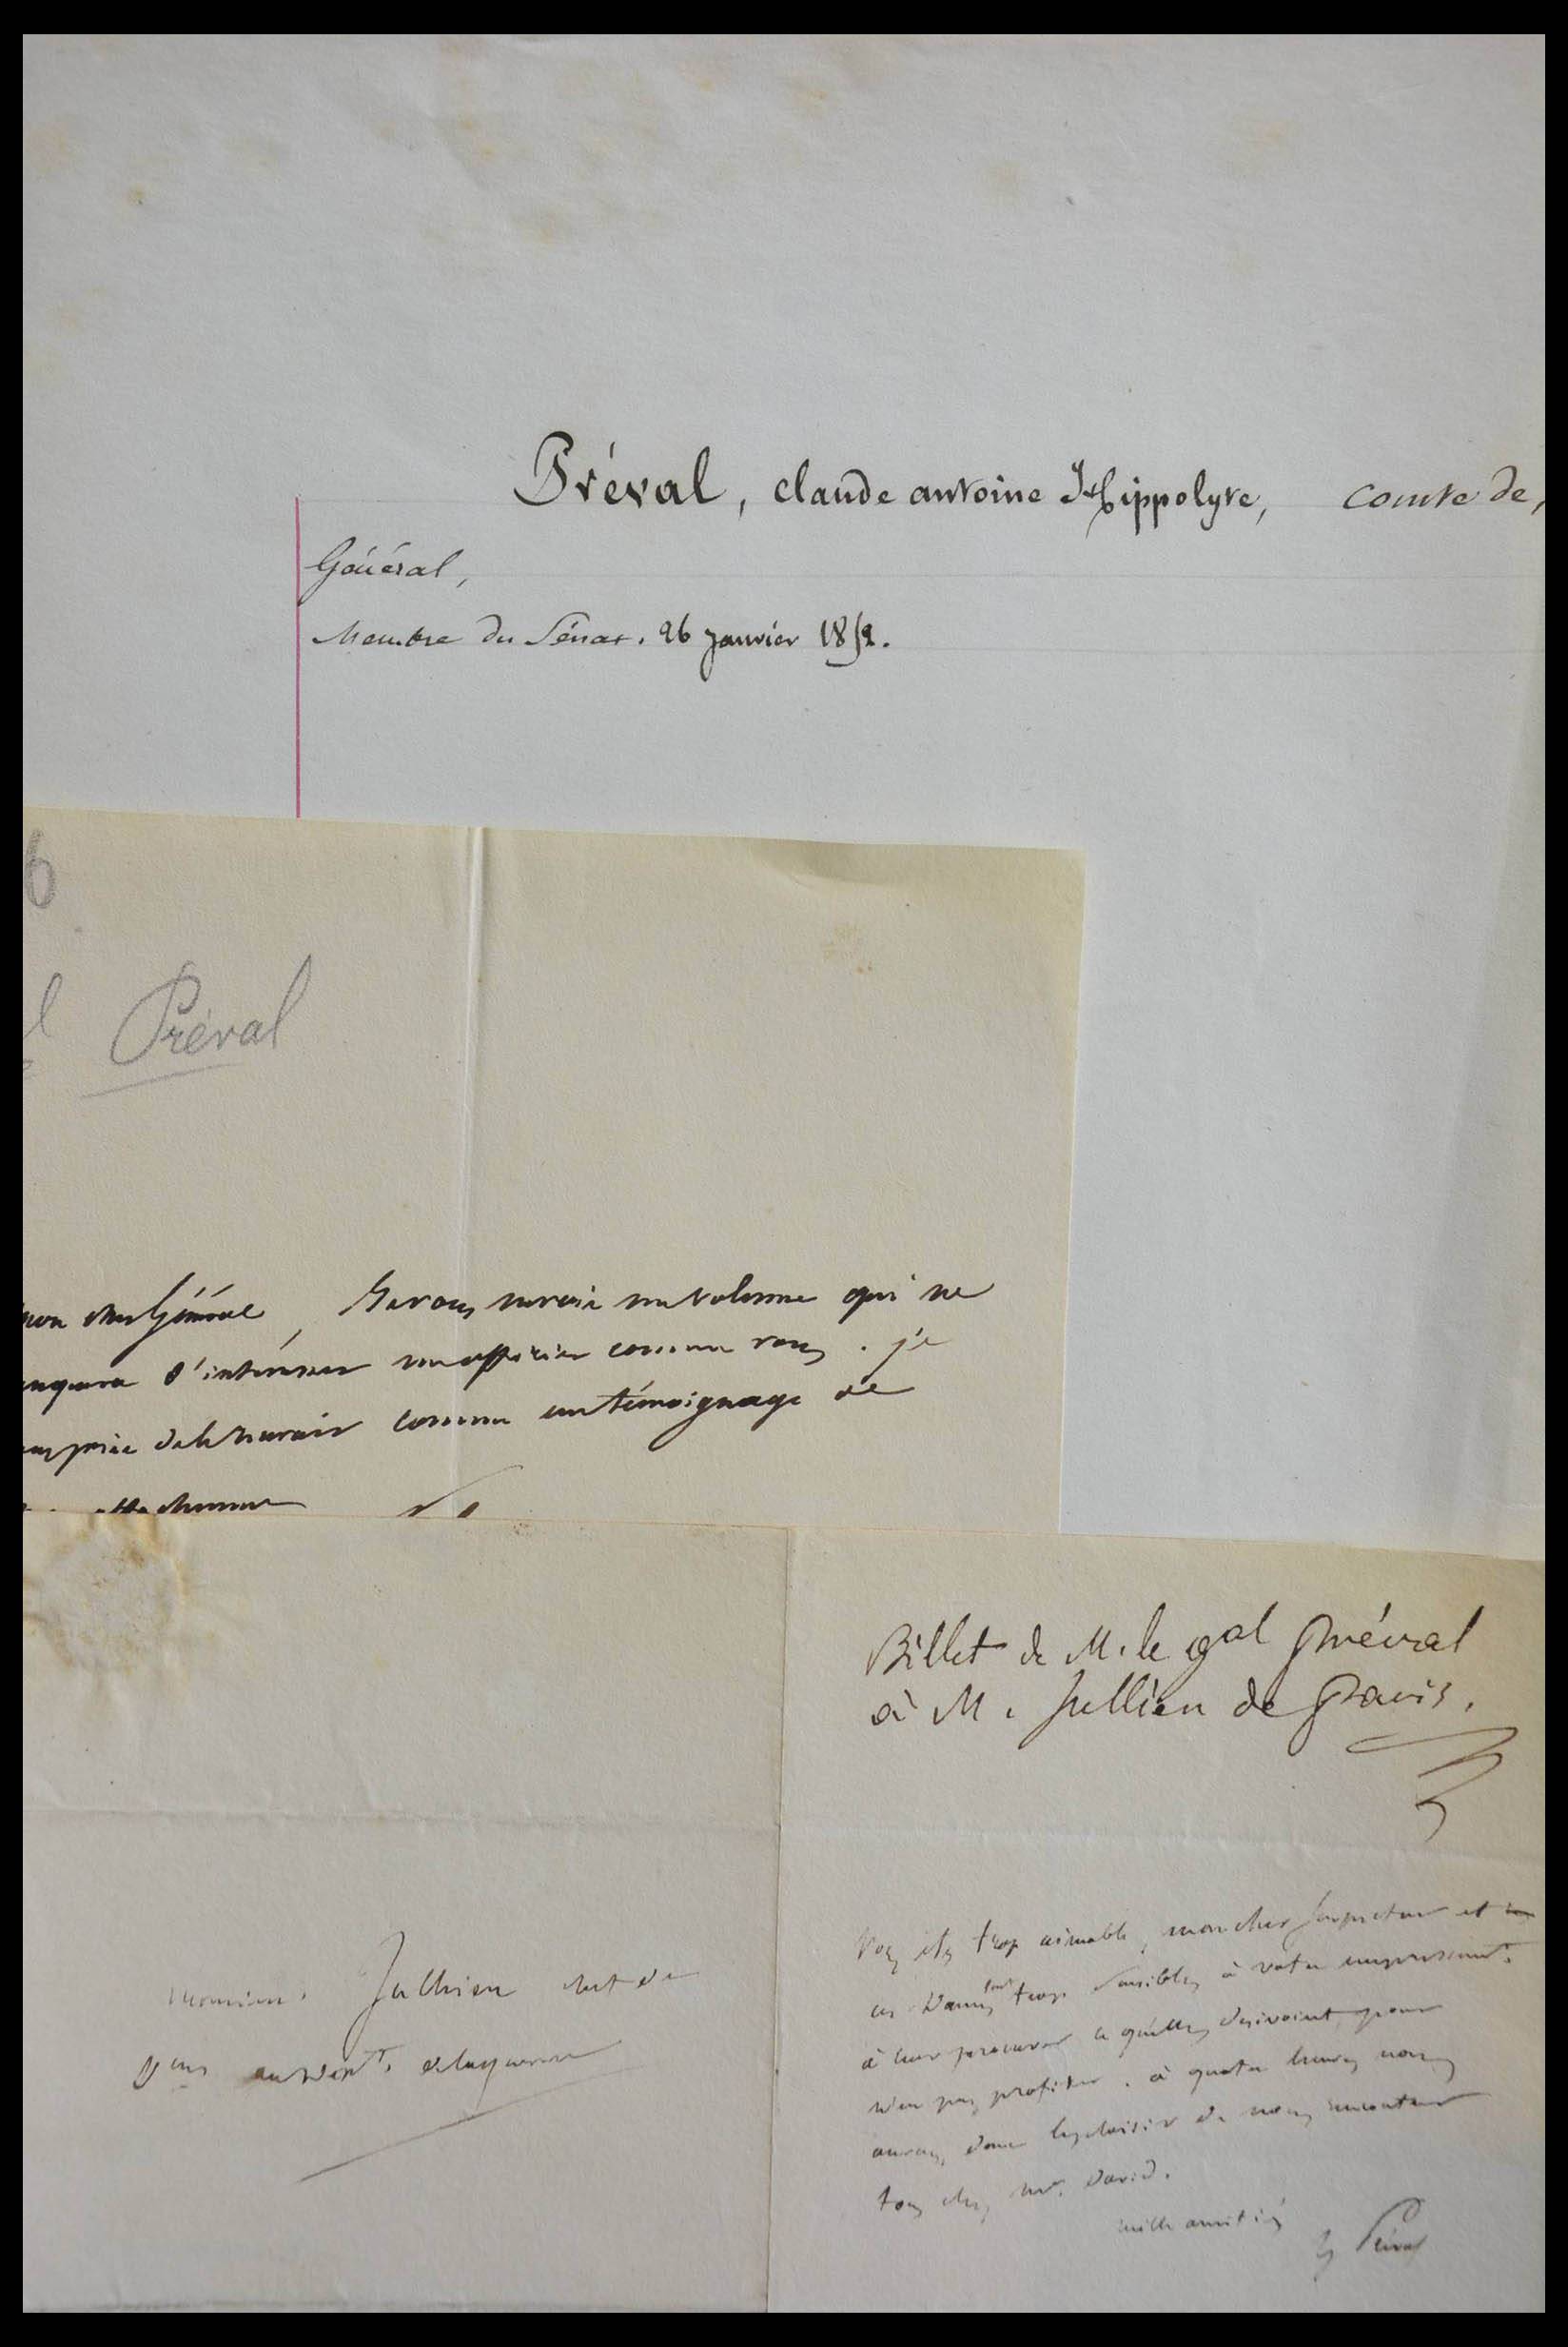 Préval, claude antoine Hippolyte, comte de,
Général,
Membre du Sénat. 26 janvier 1852.
6
l Préval
mon cher Général, Je vous envoie un volume qui ne
manquera d'intéresser un officier comme vous. je
vous prie de le recevoir comme un témoignage de
attachement
Billet de M. le gal Préval
à M. Jullien de Paris.
Monsieur Jullien chef de
Don au dépt. de la guerre
Vous etes trop aimable, mon cher Inspecteur et
ces Dames sont trop sensibles à votre empressement
à leur procurer ce qu'elles desiroient, pour
n'en pas profiter. à quatre heures nous
aurons donc le plaisir de nous rencontrer
tous chez mr. David.
mille amitiés
Préval